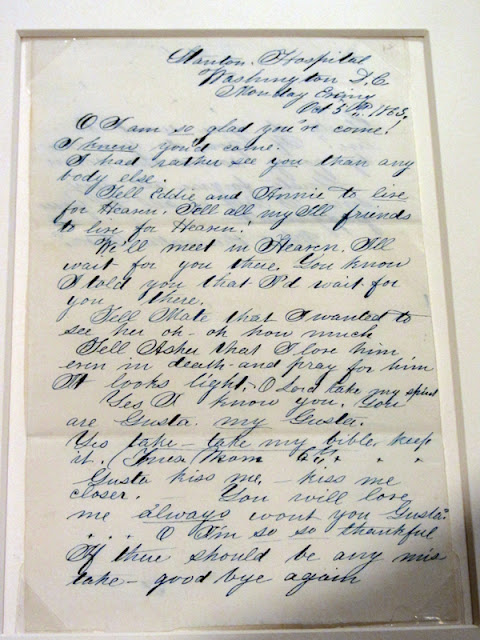 Stanton. Hospital
Washington D.C.
Monday Evning
Oct 5th, 1863,
O I am so glad you're come!
I knew you'd come.
I had rather see you than any
body else.
Tell Eddie and Annie to live
for Heaven. Tell all my Ill friends
to live for Heaven!
We'll meet in Heaven. I'll
wait for you there. You know
I told you that I'd wait for
you there.
Tell Mate that I wanted to
see her oh - oh how much
Tell Asher that I love him
even in death - and pray for him
It looks light; O Lord take my spirit
Yes I know you. You
are Gusta. my Gusta.
Yes take - take my bible, keep
it. (Tues. Morn 6th, " " "
Gusta kiss me, - kiss me
closer. You will love
me always wont you Gusta?
. . . . O I'm so so thankful
If there should be any mis
take - good bye again